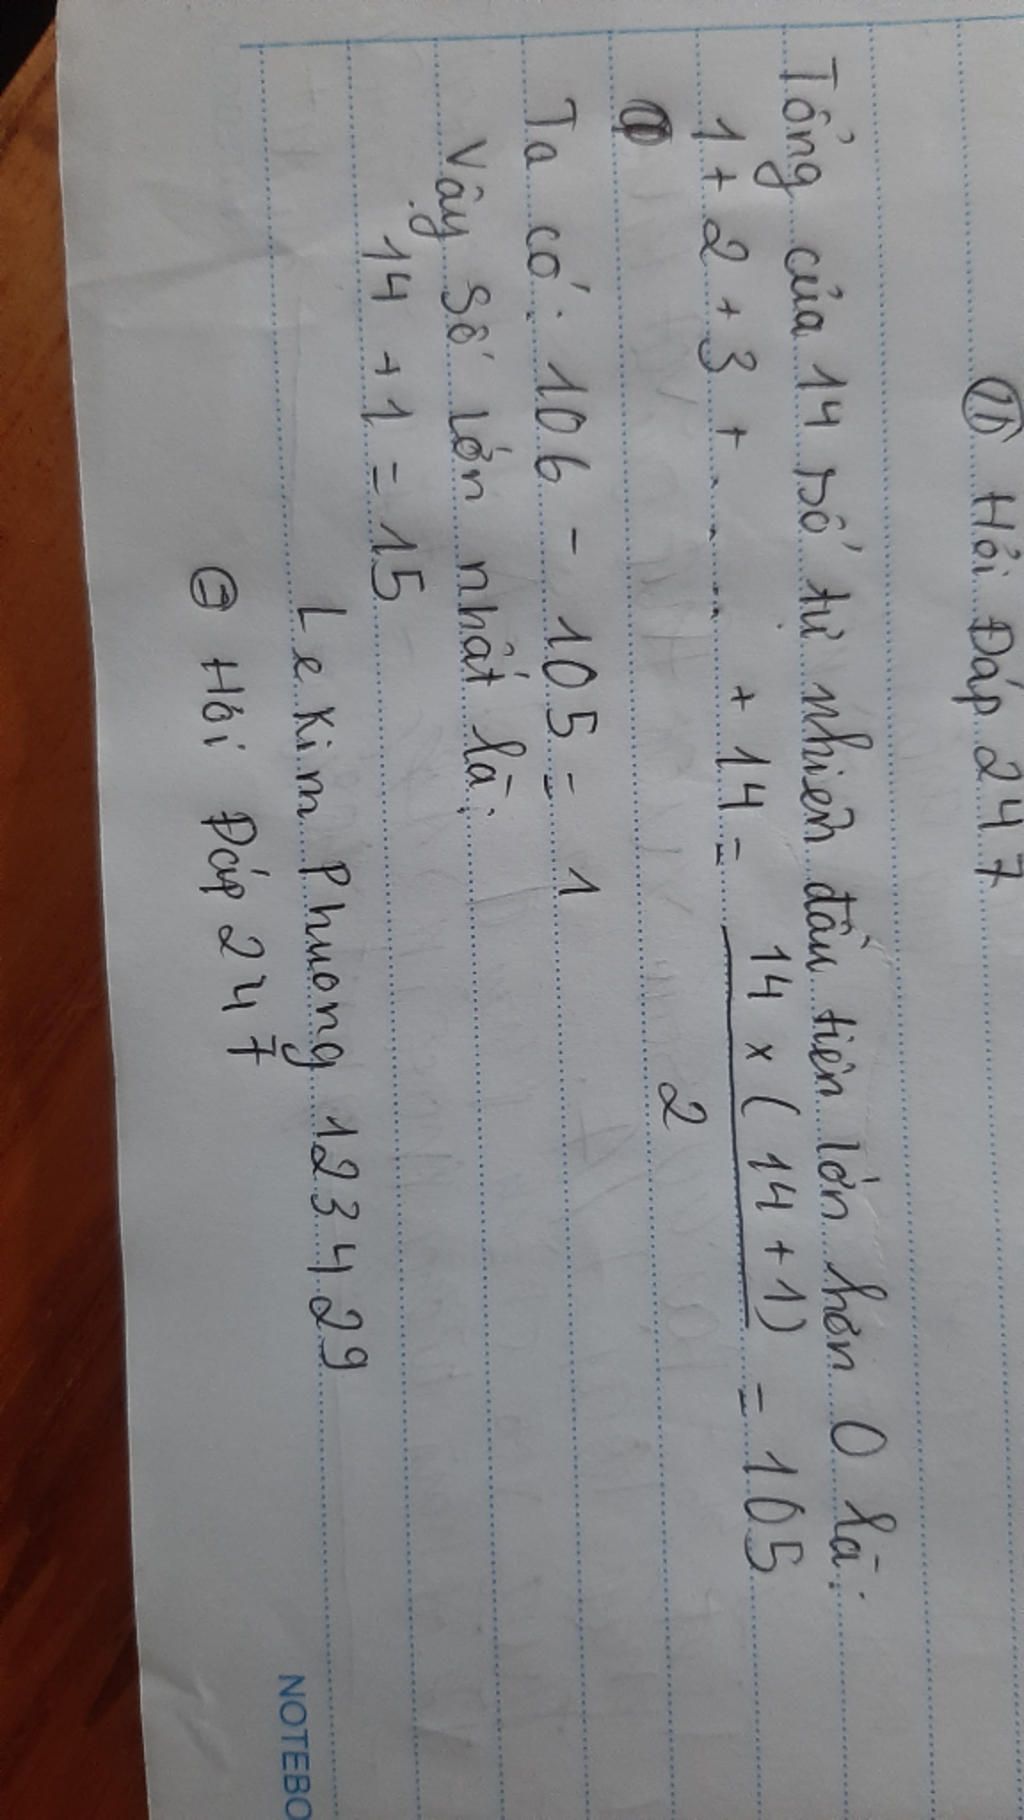 Hỏi Đáp 247
Tổng của 14 số tự nhiên đầu tiên lớn hơn 0 là:
1 + 2 + 3 + ..... + 14 = 14 x (14 + 1) = 105
2
Ta có: 106 - 105 = 1
Vậy số lớn nhất là:
14 + 1 = 15
Le Kim Phuong 123429
Hỏi Đáp 247
NOTEBO